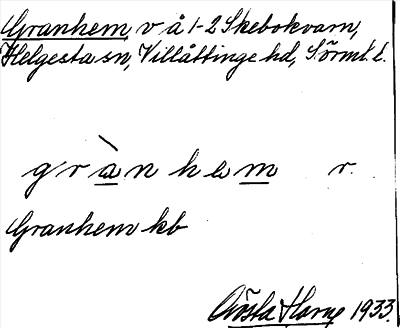 Granhem v å 1-2 Skebokvarn,
Helgesta sn, Villåttinge hd, Sörml. l.
gràn hem r.
Granhem kb
Gösta Harup 1933.